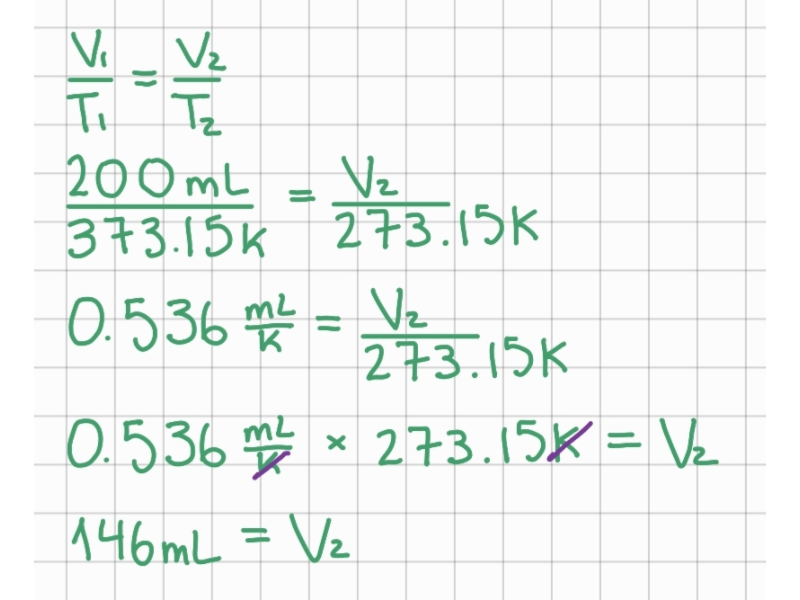 V₁/T₁ = V₂/T₂
200mL/373.15K = V₂/273.15K
0.536 mL/K = V₂/273.15K
0.536 mL/K × 273.15K = V₂
146mL = V₂